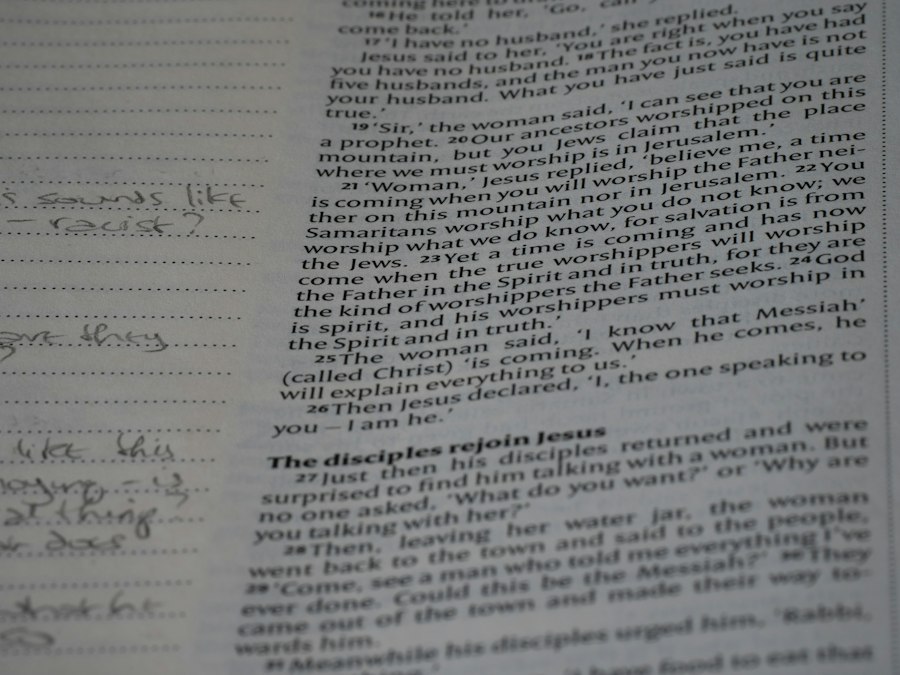 sounds like
– racist?
they
like this
thing
does
coming here to
16 He told her, 'Go, call
come back.'
17 'I have no husband,' she replied.
Jesus said to her, 'You are right when you say
you have no husband. 18 The fact is, you have had
five husbands, and the man you now have is not
your husband. What you have just said is quite
true.'
19 'Sir,' the woman said, 'I can see that you are
a prophet. 20 Our ancestors worshipped on this
mountain, but you Jews claim that the place
where we must worship is in Jerusalem.'
21 'Woman,' Jesus replied, 'believe me, a time
is coming when you will worship the Father nei-
ther on this mountain nor in Jerusalem. 22 You
Samaritans worship what you do not know; we
worship what we do know, for salvation is from
the Jews. 23 Yet a time is coming and has now
come when the true worshippers will worship
the Father in the Spirit and in truth, for they are
the kind of worshippers the Father seeks. 24 God
is spirit, and his worshippers must worship in
the Spirit and in truth.'
25 The woman said, 'I know that Messiah'
(called Christ) 'is coming. When he comes, he
will explain everything to us.'
26 Then Jesus declared, 'I, the one speaking to
you – I am he.'
The disciples rejoin Jesus
27 Just then his disciples returned and were
surprised to find him talking with a woman. But
no one asked, 'What do you want?' or 'Why are
you talking with her?'
28 Then, leaving her water jar, the woman
went back to the town and said to the people,
29 'Come, see a man who told me everything I've
ever done. Could this be the Messiah?' 30 They
came out of the town and made their way to-
wards him.
31 Meanwhile his disciples urged him, 'Rabbi,
have food to eat that